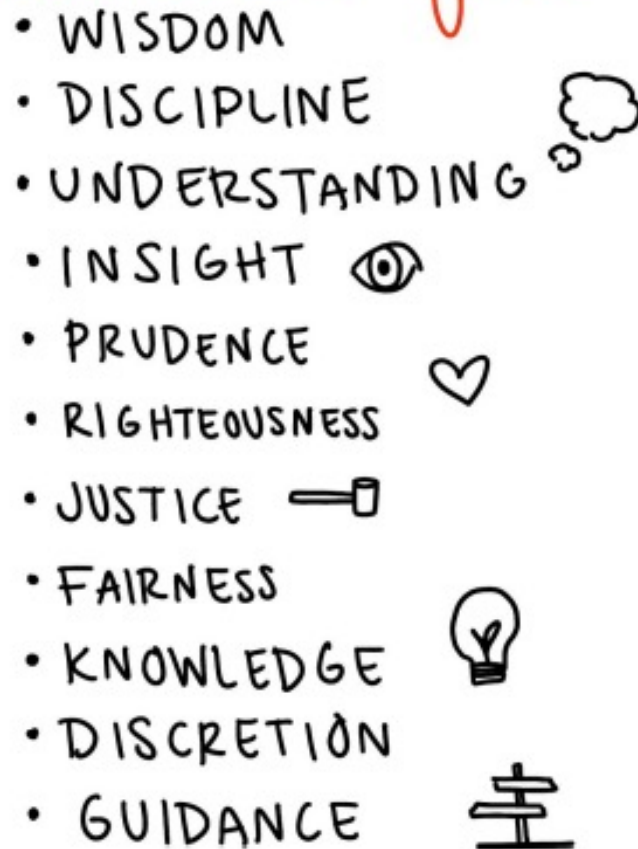 • WISDOM
• DISCIPLINE
• UNDERSTANDING
• INSIGHT
• PRUDENCE
• RIGHTEOUSNESS
• JUSTICE
• FAIRNESS
• KNOWLEDGE
• DISCRETION
• GUIDANCE